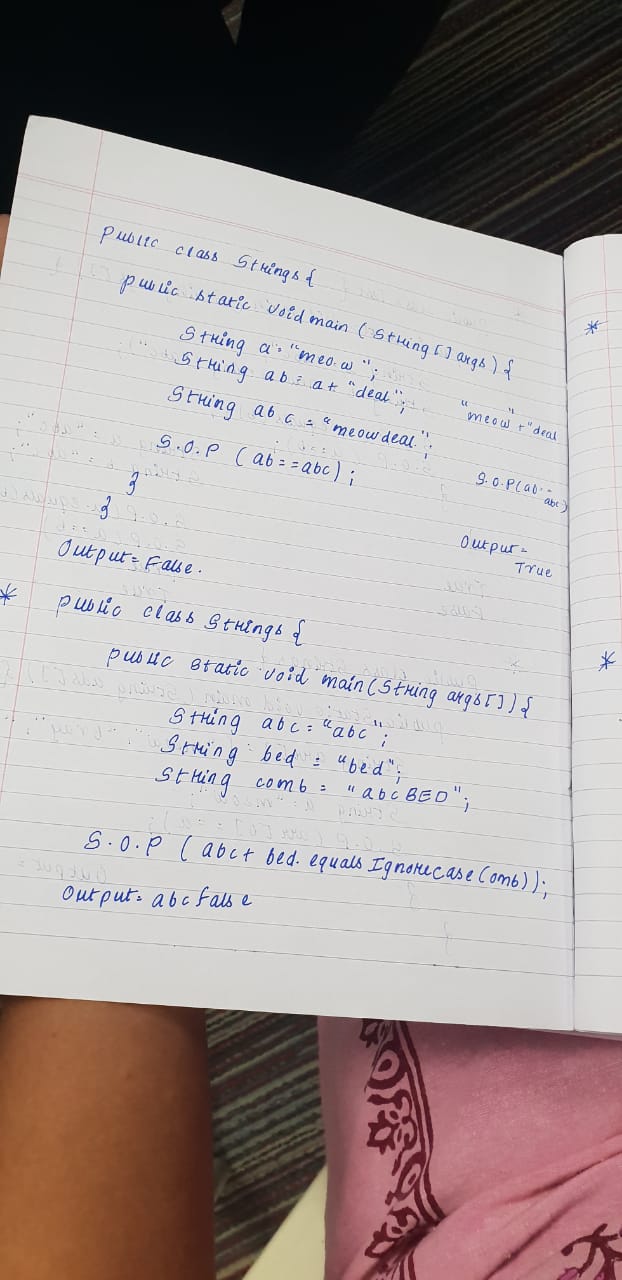 public class Strings {
public static void main (String [] args) {
String a = "meow";
String ab = a + "deal";
String abc = "meowdeal";
S.O.P (ab==abc);
}
}
Output = False.
"meow" + "deal
S.O.P(ab==
abc)
Output =
True
*
*
* public class Strings {
public static void main (String args []) {
String abc = "abc";
String bed = "bed";
String comb = "abcBED";
S.O.P (abc + bed. equals Ignorecase (omb));
Output = abc false